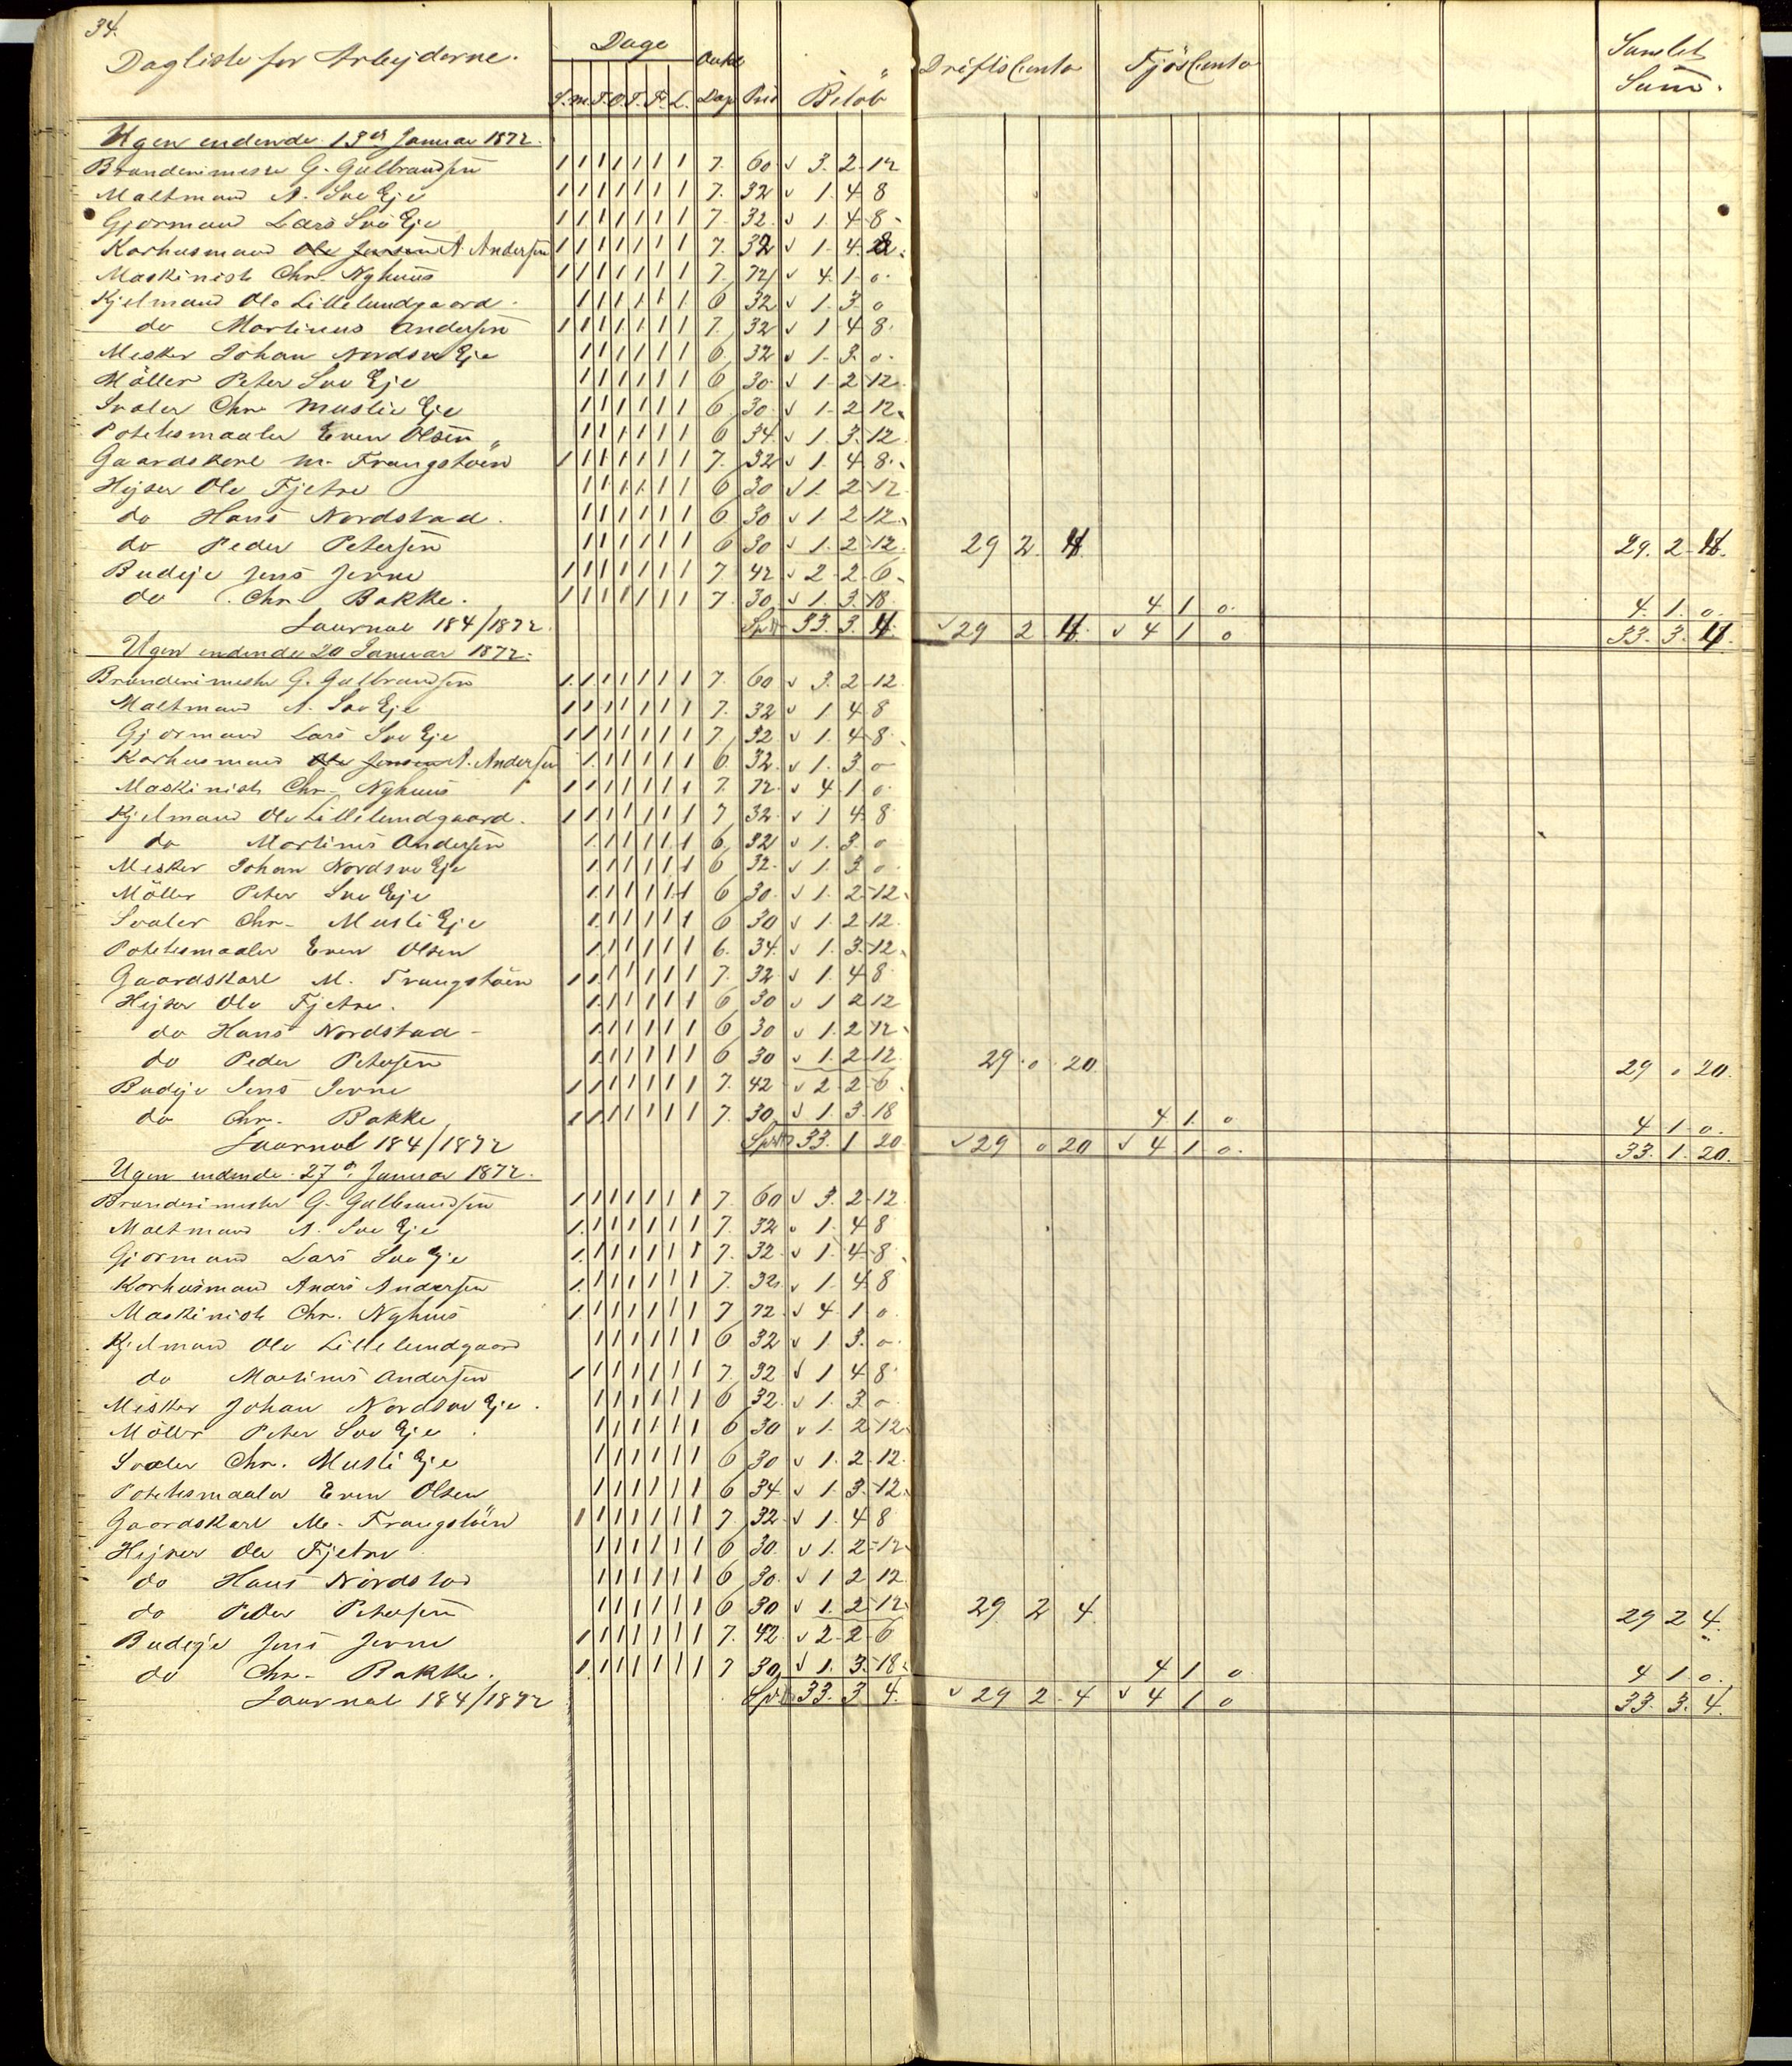 34.
Dagliste for Arbejderne. Dage Antal Driftsconto Fjösconto Samlet
S. M. T. O. T. Fr. L. Dage Pris Belöb Sum.
Ugen endende 13de Januar 1872.
Brænderimester G. Gulbrandsen 1 1 1 1 1 1 1 7. 60 √ 3. 2. 12
Maltmand A. Svee Eje 1 1 1 1 1 1 1 7. 32 √ 1. 4. 8
Gjørmand Lars Svee Eje 1 1 1 1 1 1 1 7. 32. √ 1. 4. 8
Karhusmand Ole Jensen A. Andersen 1 1 1 1 1 1 1 7. 32 √ 1. 4. 8
Maskinist Chr. Nyhuus 1 1 1 1 1 1 1 7. 72 √ 4. 1. 0.
Kjelmand Ole Lillelundgaard. 1 1 1 1 1 1 6 32 √ 1. 3. 0
do Martinus Andersen 1 1 1 1 1 1 1 7. 32 √ 1 4 8.
Mesker Johan Nordsve Eje 1 1 1 1 1 1 6. 32 √ 1. 3. 0.
Möller Peter Svee Eje 1 1 1 1 1 1 6 30. √ 1. 2. 12.
Svaler Chr. Muslie Eje 1 1 1 1 1 1 6 30. √ 1. 2 12.
Potetesmaaler Even Olsen 1 1 1 1 1 1 6 34. √ 1. 3. 12
Gaardskarl M. Frangstöen 1 1 1 1 1 1 1 7. 32 √ 1. 4 8.
Hejser Ole Fjetre 1 1 1 1 1 1 6 30 √ 1. 2. 12
do Hans Nordstad. 1 1 1 1 1 1 6 30 √ 1. 2 12.
do Peder Petersen 1 1 1 1 1 1 6 30 √ 1. 2. 12. 29 2. 4 29. 2. 4.
Budeje Jens Jevne 1 1 1 1 1 1 1 7 42 √ 2. 2. 6.
do Chr. Bakke. 1 1 1 1 1 1 1 7. 30 √ 1. 3. 18. 4 1 0. 4. 1. 0.
Journal 184/1872. Spd 33. 3. 4. √ 29 2 4. √ 4 1 0 33. 3. 4.
Ugen endende 20 Januar 1872.
Brænderimester G. Gulbrandsen 1 1 1 1 1 1 1 7. 60 √ 3. 2. 12.
Maltmand A. Svee Eje 1 1 1 1 1 1 1 7. 32 √ 1. 4 8
Gjørmand Lars Svee Eje 1 1 1 1 1 1 1 7. 32 √ 1. 4. 8.
Karhusmand Ole Jensen A. Andersen 1 1 1 1 1 1 6. 32. √ 1. 3. 0
Maskinist Chr. Nyhuus 1 1 1 1 1 1 1 7. 72. √ 4. 1 0.
Kjelmand Ole Lillelundgaard. 1 1 1 1 1 1 1 7 32. √ 1 4. 8.
do Martinus Andersen 1 1 1 1 1 1 6 32 √ 1. 3. 0
Mesker Johan Nordsve Eje 1 1 1 1 1 1 6 32. √ 1. 3 0.
Möller Peter Svee Eje 1 1 1 1 1 1 6 30. √ 1. 2. 12.
Svaler Chr. Musli Eje 1 1 1 1 1 1 6 30 √ 1. 2. 12.
Potetesmaaler Even Olsen 1 1 1 1 1 1 6. 34. √ 1. 3. 12.
Gaardskarl M. Frangstöen 1 1 1 1 1 1 1 7. 32. √ 1. 4 8.
Hejser Ole Fjetre. 1 1 1 1 1 1 6 30 √ 1 2 12
do Hans Nordstad 1 1 1 1 1 1 6 30 √ 1. 2 12.
do Peder Petersen 1 1 1 1 1 1 6 30 √ 1. 2. 12. 29. 0. 20. 29 0 20.
Budeje Jens Jevne 1 1 1 1 1 1 1 7. 42 √ 2. 2. 6.
do Chr. Bakke 1 1 1 1 1 1 1 7. 30. √ 1. 3. 18 4 1. 0 4 1 0.
Journal 184/1872 Spd 33. 1 20 √ 29 0 20 √ 4 1 0. 33. 1. 20.
Ugen endende 27de Januar 1872.
Brænderimester G. Gulbrandsen 1 1 1 1 1 1 1 7. 60 √ 3. 2. 12.
Maltmand A. Svee Eje 1 1 1 1 1 1 1 7. 32 √ 1. 4 8
Gjørmand Lars Svee Eje 1 1 1 1 1 1 1 7. 32. √ 1. 4. 8.
Karhusmand Andrs Andersen 1 1 1 1 1 1 1 7. 32. √ 1. 4. 8
Maskinist Chr. Nyhuus 1 1 1 1 1 1 1 7 72. √ 4. 1 0.
Kjelmand Ole Lillelundgaard 1 1 1 1 1 1 6 32 √ 1. 3. 0.
do Martinus Andersen 1 1 1 1 1 1 1 7. 32 √ 1 4 8.
Mesker Johan Nordsve Eje. 1 1 1 1 1 1 6 32. √ 1. 3. 0.
Möller Peter Svee Eje. 1 1 1 1 1 1 6 30 √ 1. 2. 12.
Svaler Chr. Musli Eje 1 1 1 1 1 1 6 30 √ 1. 2. 12.
Potetesmaaler Even Olsen 1 1 1 1 1 1 6 34. √ 1. 3. 12.
Gaardskarl M. Frangstöen 1 1 1 1 1 1 1 7. 32. √ 1. 4 8
Hejser Ole Fjetre 1 1 1 1 1 1 6 30. √ 1. 2. 12.
do Hans Nordstad 1 1 1 1 1 1 6 30. √ 1 2 12.
do Peder Petersen 1 1 1 1 1 1 6 30 √ 1. 2. 12. 29 2 4. 29 2 4.
Budeje Jens Jevne 1 1 1 1 1 1 1 7. 42. √ 2. 2. 6
do Chr. Bakke. 1 1 1 1 1 1 1 7 30. √ 1. 3. 18. 4 1 0. 4 1 0.
Journal 184/1872 Spd 33. 3. 4. √ 29 2. 4 √ 4 1 0 33. 3. 4.